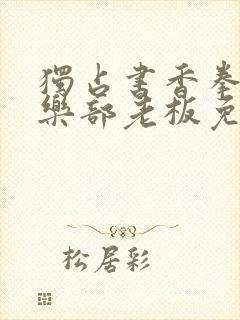 獨占書香拳
樂部老板免
松居彩